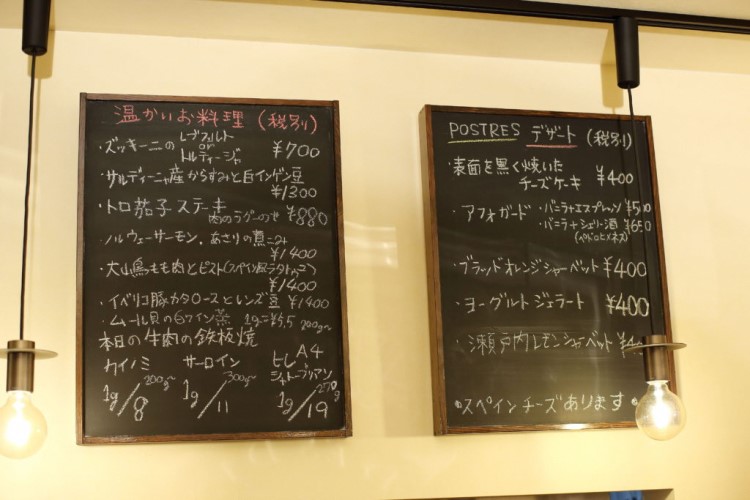 温かいお料理(税別)
・ズッキーニの レブエルト
or
トルティージャ ¥700
・サルディーニャ産からすみと白インゲン豆
¥1300
・トロ茄子ステーキ
肉のラグーのせ ¥880
・ノルウェーサーモン、あさりの煮こみ
¥1400
・大山鳥もも肉とピスト(スペイン風ラタトゥユ)
¥1400
・イベリコ豚カタロースとレンズ豆 ¥1400
・ムール貝の白ワイン蒸 1g=¥5,5 200g〜
本日の牛肉の鉄板焼
カイノミ サーロイン ヒレ A4
シャトーブリアン
1g/8 200g〜 1g/11 300g〜 1g/19 270g
POSTRES デザート (税別)
・表面を黒く焼いた
チーズケーキ ¥400
・アフォガード ・バニラ+エスプレッソ ¥500
・バニラ+シェリー酒 ¥650
(ペドロヒメネス)
・ブラッドオレンジシャーベット ¥400
・ヨーグルトジェラート ¥400
・瀬戸内レモンシャーベット
•スペインチーズあります•